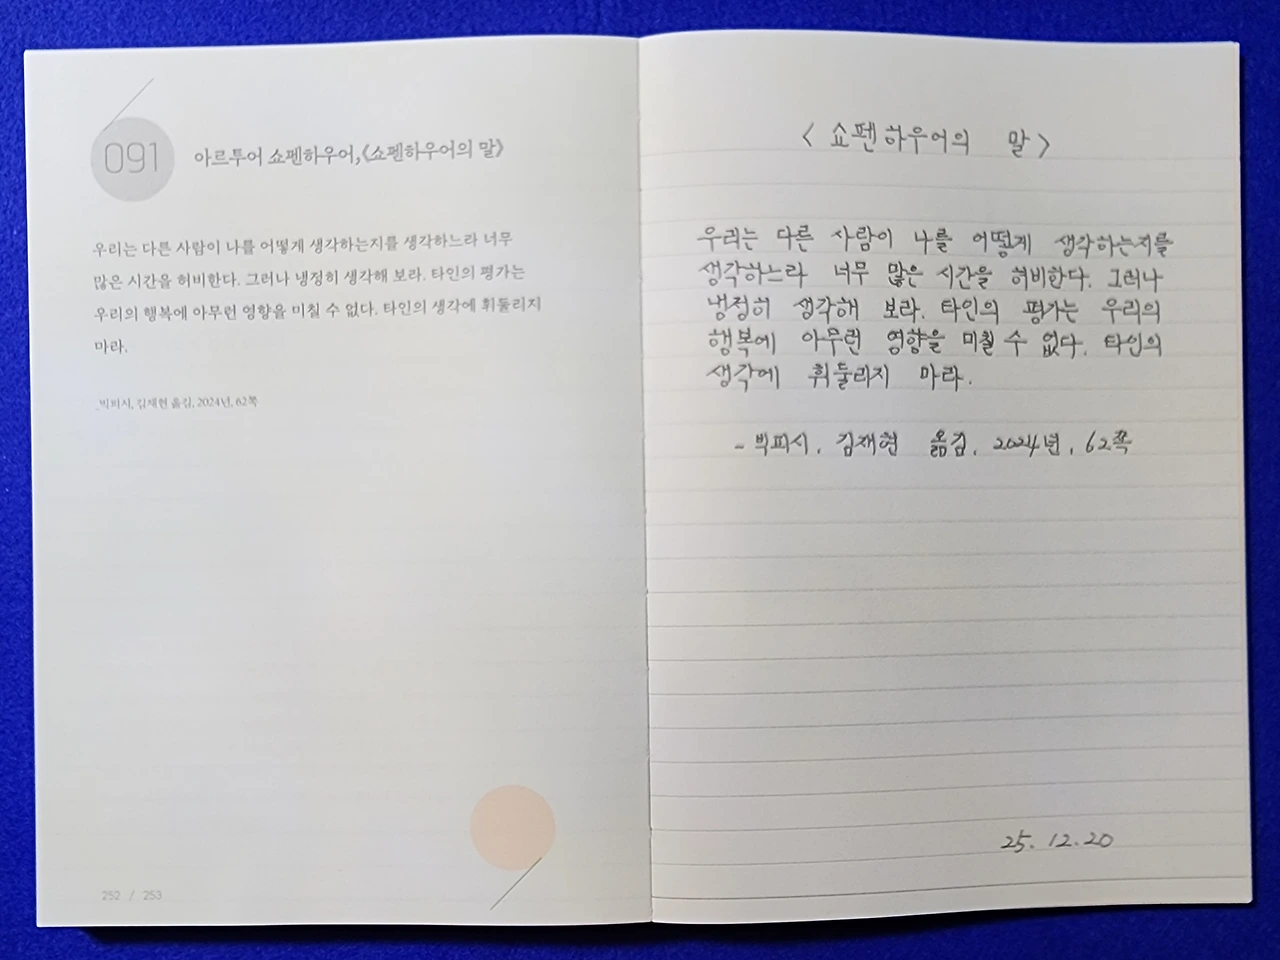 091
아르투어 쇼펜하우어,《쇼펜하우어의 말》
우리는 다른 사람이 나를 어떻게 생각하는지를 생각하느라 너무
많은 시간을 허비한다. 그러나 냉정히 생각해 보라. 타인의 평가는
우리의 행복에 아무런 영향을 미칠 수 없다. 타인의 생각에 휘둘리지
마라.
_빅피시, 김재현 옮김, 2024년, 62쪽
252 / 253
<쇼펜하우어의 말>
우리는 다른 사람이 나를 어떻게 생각하는지를
생각하느라 너무 많은 시간을 허비한다. 그러나
냉정히 생각해 보라. 타인의 평가는 우리의
행복에 아무런 영향을 미칠 수 없다. 타인의
생각에 휘둘리지 마라.
- 빅피시, 김재현 옮김, 2024년, 62쪽
25. 12. 20